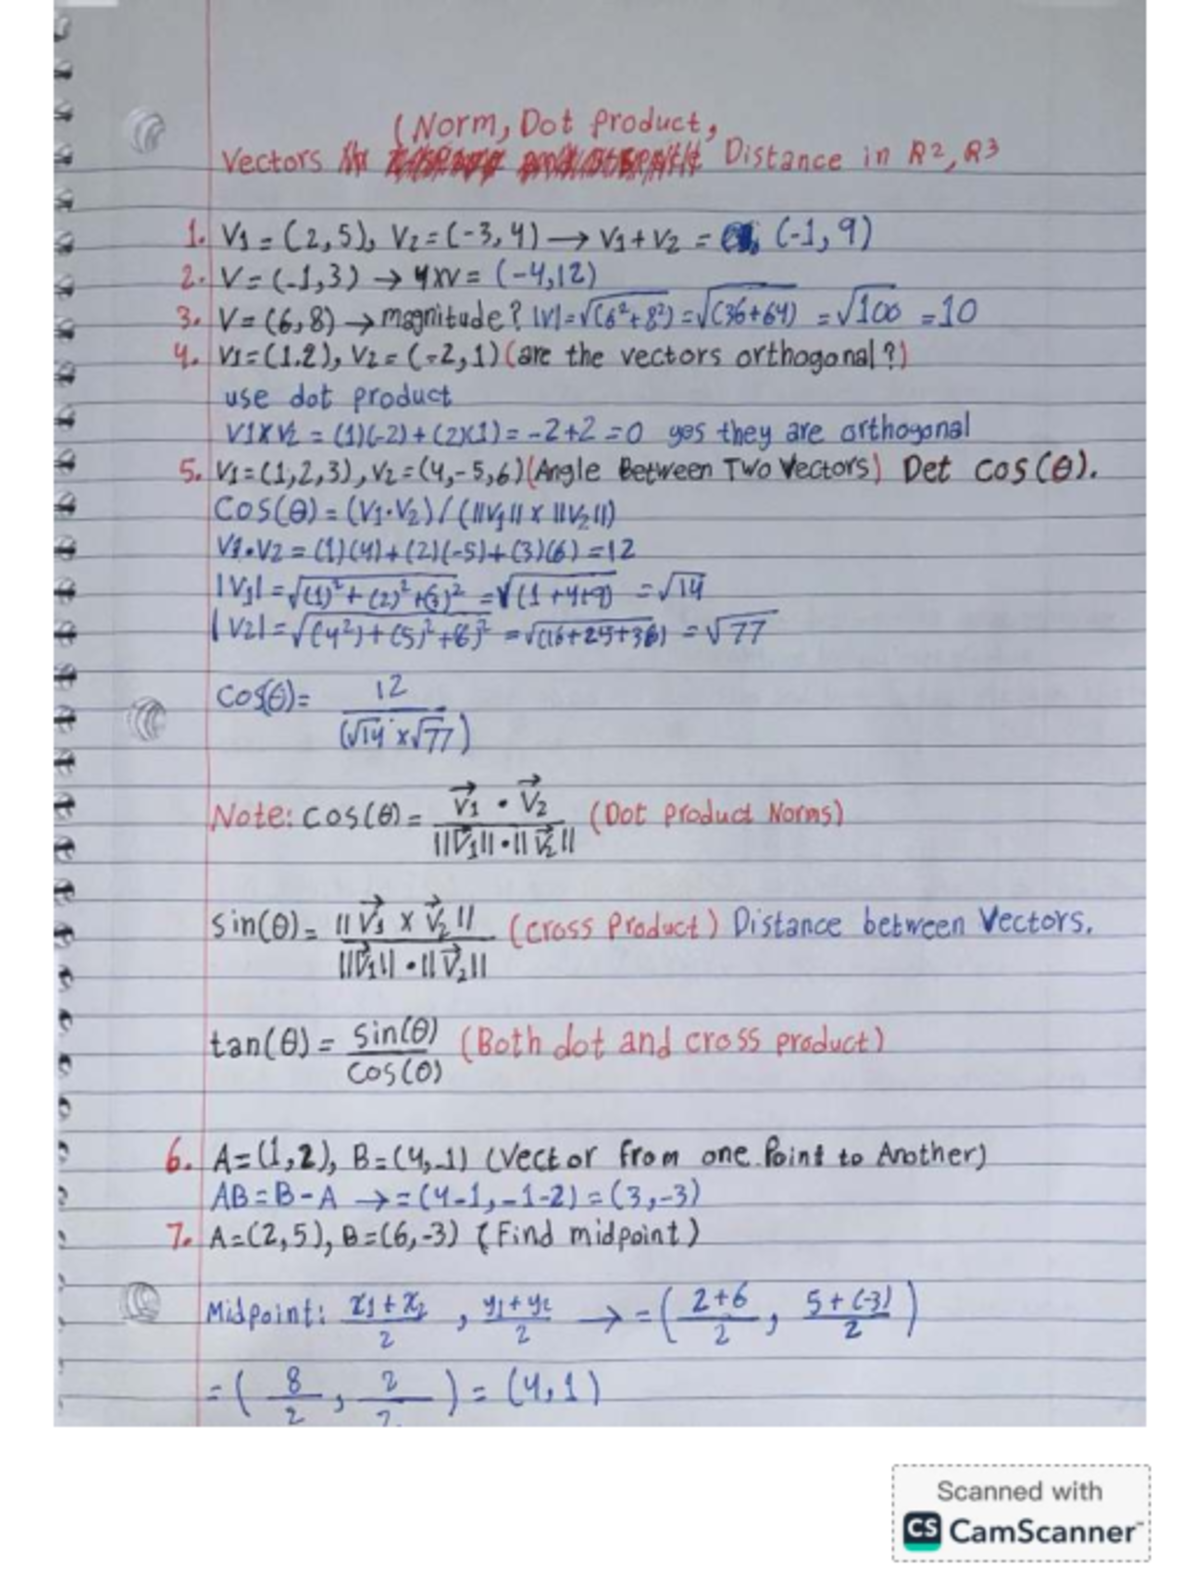 (Norm, Dot product,
Vectors Distance in R2, R3
1. V1 = (2,5), V2 = (-3,4) → V1 + V2 = (-1,9)
2. V = (-1,3) → 4xV = (-4,12)
3. V = (6,8) → magnitude? |V| = √(6²+8²) = √(36+64) = √100 = 10
4. V1 = (1.2), V2 = (-2,1) (are the vectors orthogonal?)
use dot product
V1xV2 = (1)(-2) + (2)(1) = -2+2 = 0 yes they are orthogonal
5. V1 = (1,2,3), V2 = (4,-5,6) (Angle Between Two Vectors) Det cos(θ).
Cos(θ) = (V1·V2) / (||V1|| x ||V2||)
V1·V2 = (1)(4) + (2)(-5) + (3)(6) = 12
|V1| = √(1)² + (2)² + (3)² = √(1+4+9) = √14
|V2| = √(4²) + (5)² + 6)² = √(16+25+36) = √77
Cos(θ) = 12 / (√14 x √77)
Note: cos(θ) = V⃗1 · V⃗2 / ||V⃗1|| · ||V⃗2|| (Dot product Norms)
sin(θ) = ||V⃗1 x V⃗2|| / ||V⃗1|| · ||V⃗2|| (cross Product) Distance between Vectors.
tan(θ) = sin(θ) / cos(θ) (Both dot and cross product)
6. A = (1,2), B = (4,-1) (Vector from one Point to Another)
AB = B - A → = (4-1, -1-2) = (3,-3)
7. A = (2,5), B = (6,-3) (Find midpoint)
Midpoint: x1 + x2 / 2 , y1 + y2 / 2 → = ( 2+6 / 2 , 5+(-3) / 2 )
= ( 8 / 2 , 2 / 2 ) = (4,1)
Scanned with
CS CamScanner™